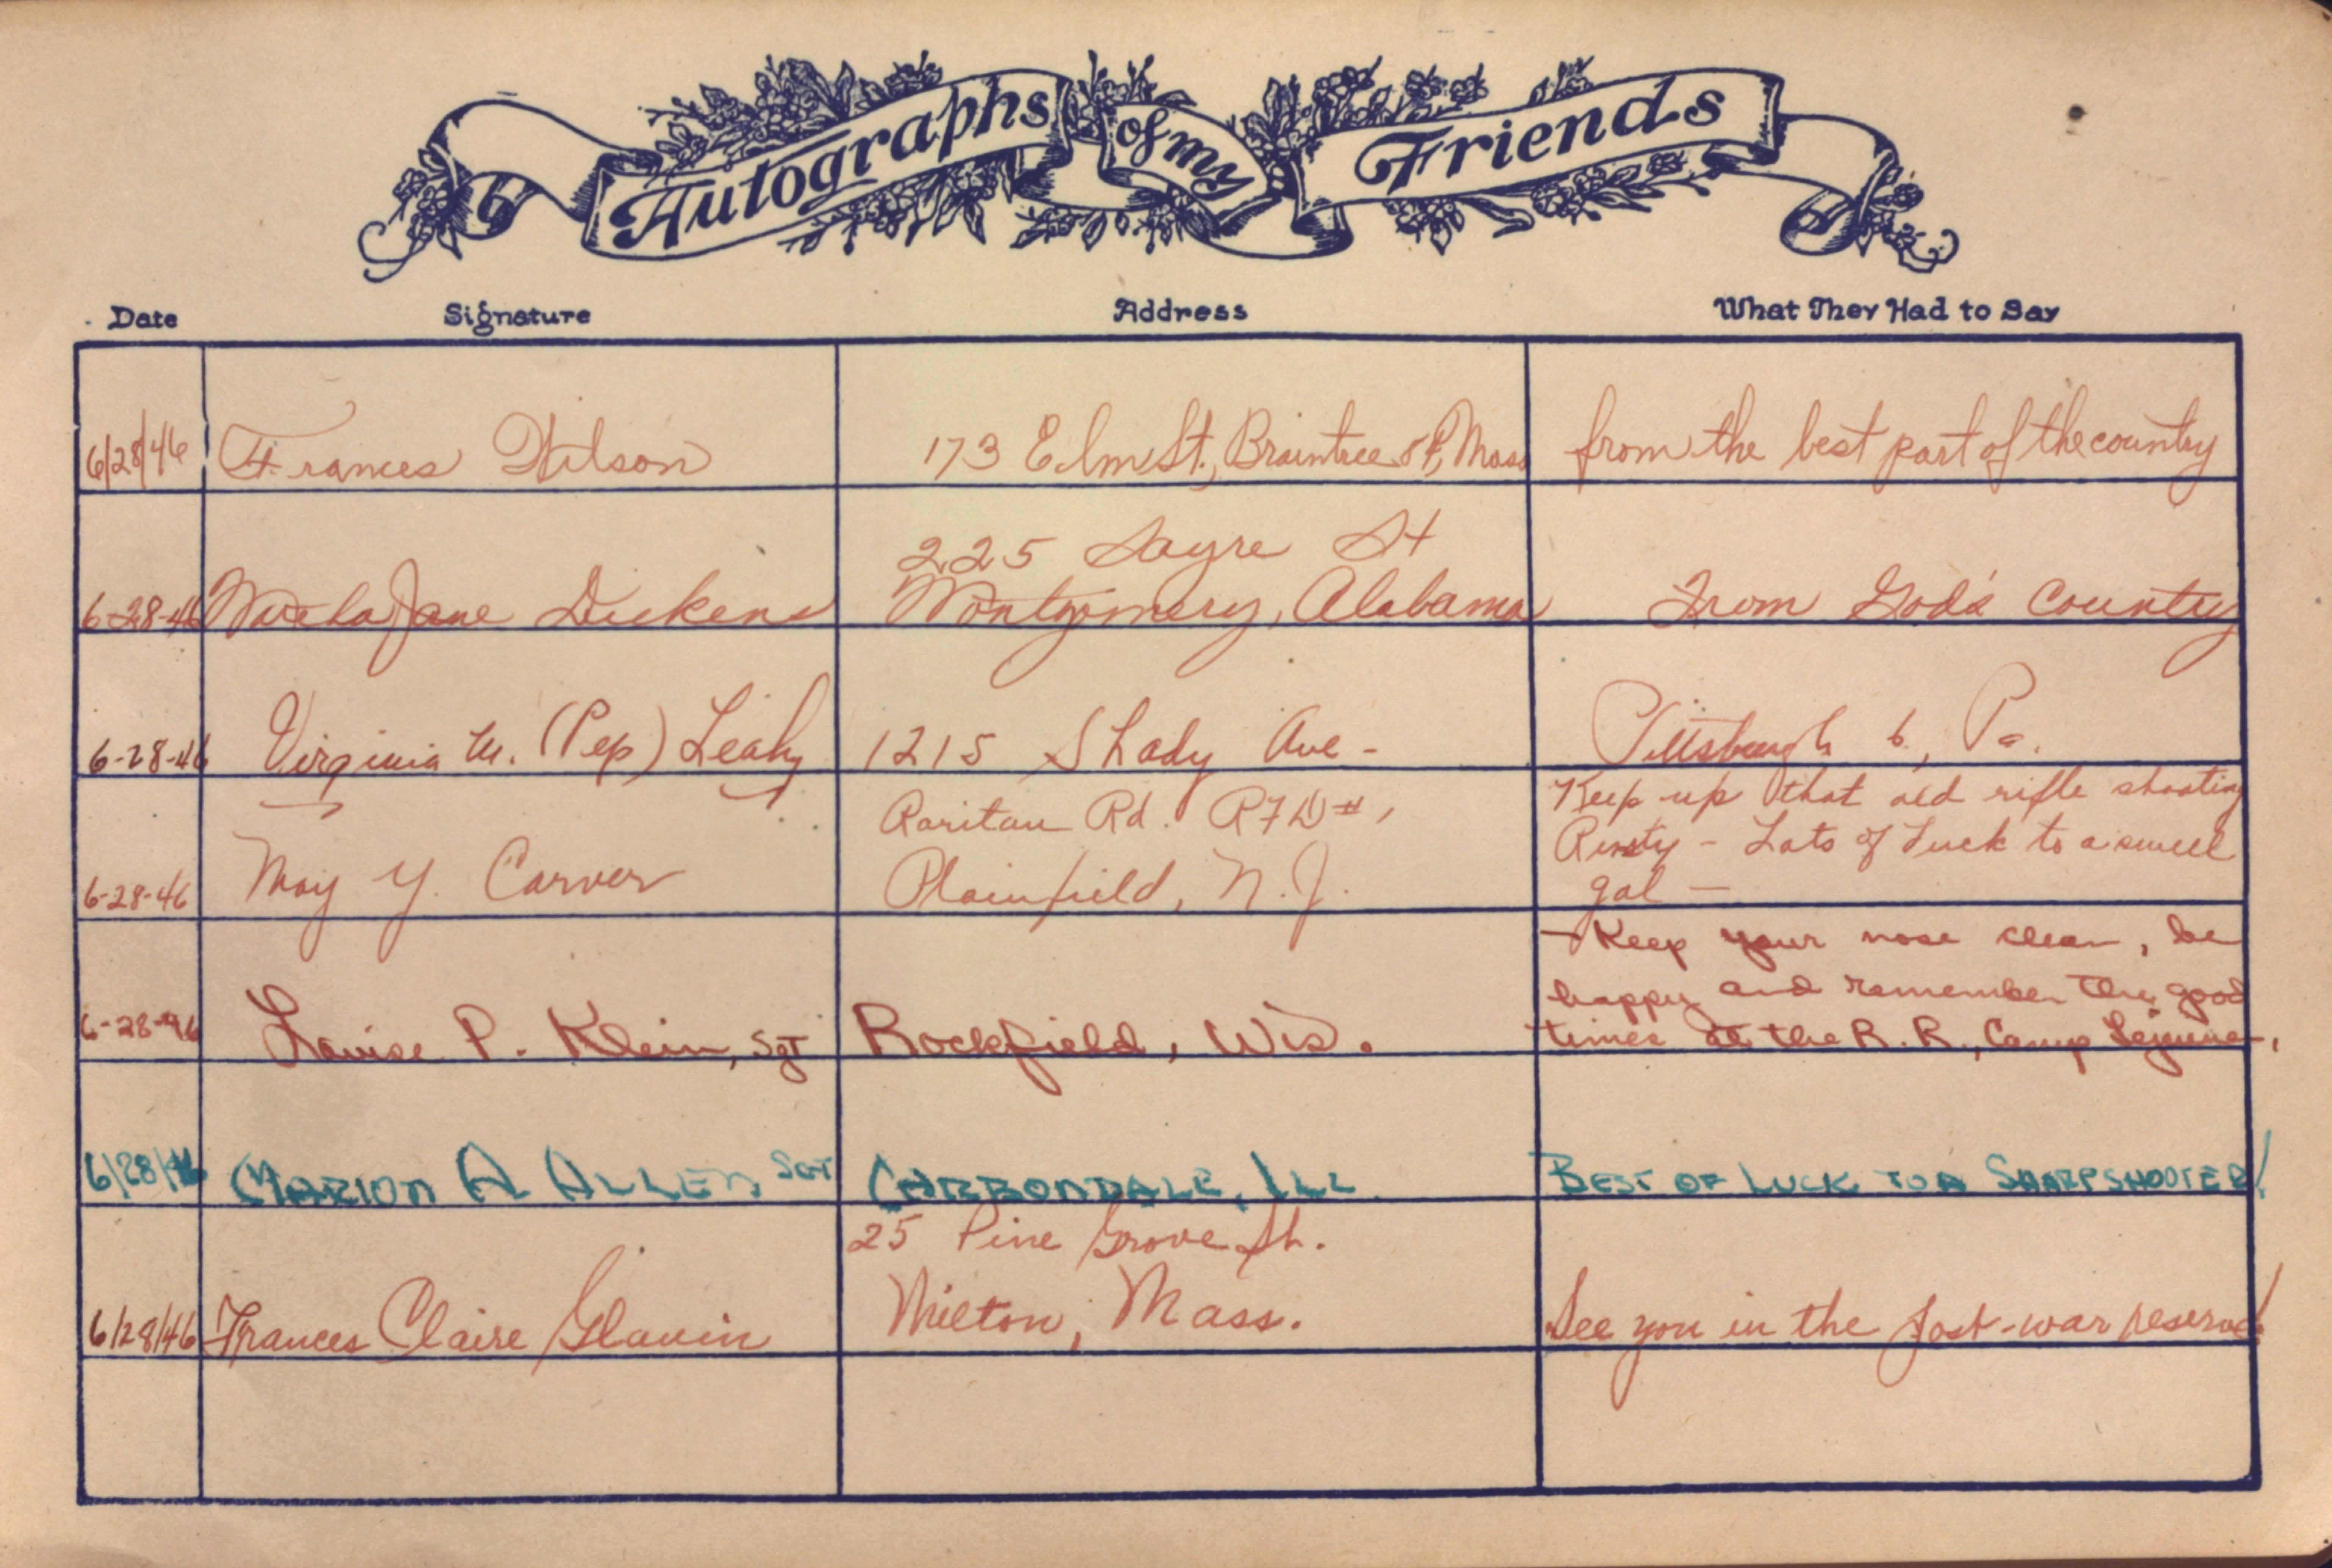 Autographs of my Friends
Date Signature Address What They Had to Say
6/28/46 Frances Wilson 173 Elm St., Braintree 84, Mass from the best part of the country
225 Sayre St
6-28-46 Jane Dickens Montgomery, Alabama From God's Country
6-28-46 Virginia M. (Pep) Leahy 1215 Shady Ave - Pittsburgh 6, Pa.
Raritan Rd. RFD #1 Keep up that old rifle shooting
Rusty - Lots of Luck to a swell
6-28-46 May Y. Carver Plainfield, N.J. gal -
- Keep your nose clean, be
happy and remember the good
6-28-46 Louise P. Klein, Sgt Rockfield, Wis. times at the R.R., Camp Lejeune -,
6/28/46 MARION A ALLEN SGT CARBONDALE, ILL BEST OF LUCK TO A SHARPSHOOTER!
25 Pine Grove St.
6/28/46 Frances Claire Glavin Milton, Mass. See you in the post-war reserve!